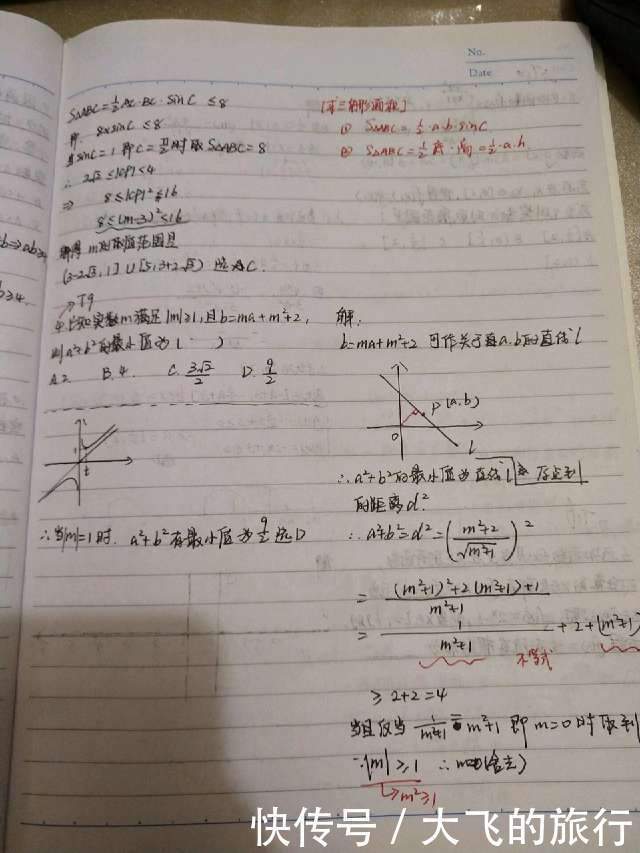 No.
Date
S△ABC=½AC·BC·sinC ≤8
即 8×sinC ≤8
当sinC=1 即C=π/2时取S△ABC=8
∴ 2√2≤|CP|<4
⇒ 8≤|CP|²<16
8≤(m-3)²<16
解得 m的取值范围是
[求三角形面积]
① S△ABC=½·a·b·sinC
② S△ABC=½底·高=½·a·h
→T9
4.已知实数m满足|m|≥1,且b=ma+m²+2,
则a²+b²的最小值为( )
A.2 B.4 C.3√2/2 D.9/2
∴当|m|=1时. a²+b²有最小值为9/2 选D
解:
b=ma+m²+2 可作关于a.b的直线l
P(a,b)
O
l
∴a²+b²的最小值为直线l
的距离d².
∴a²+b²=d²=((m²+2)/√(m²+1))²
=((m²+1)²+2(m²+1)+1)/(m²+1)
=1/(m²+1)+2+(m²+1)
不等式
≥2+2=4
当且仅当 1/(m²+1)=m²+1 即m=0时取到
∵|m|≥1 ∴m=0(舍去)
→m²≥1
快传号/大飞的旅行